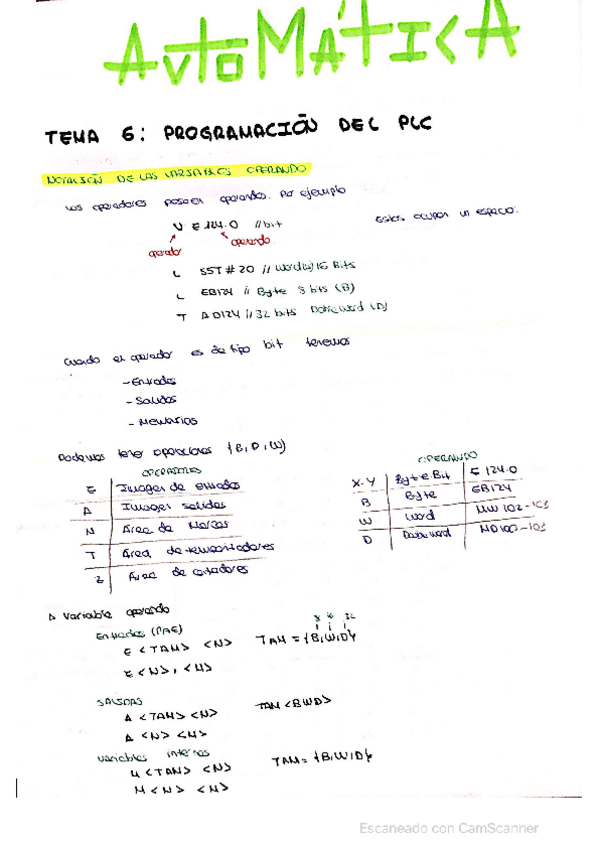 AUTOMÁTICA
TEMA 6: PROGRAMACIÓN DEL PLC
NOTACIÓN DE LAS VARIABLES OPERANDO
Los operadores poseen operandos. Por ejemplo
U E 124.0 // bit
Estos ocupan un espacio.
operador
operando
L S5T#20 // Word(W) 16 Bits
L EB124 // Byte 8 bits (B)
T AD124 // 32 bits Dobleword (D)
Cuando el operador es de tipo bit tenemos
- Entradas
- Salidas
- Memorias
Podemos tener operadores {B, D, W}
OPERADORES
E Imagen de entradas
A Imagen salidas
M Área de Marcas
T Área de temporizadores
Z Área de contadores
OPERANDO
X.Y Byte.Bit E 124.0
B Byte EB124
W Word MW 102-103
D Dobleword MD100-103
Δ Variable operando
Entradas (PAE)
8 16 32
E <TAM> <N> TAM = {B,W,D}
E <N>, <M>
SALIDAS
A <TAM> <N> TAM <BWD>
A <N> <M>
Variables internas
M <TAM> <N> TAM = {B,W,D}
M <N> <M>
Escaneado con CamScanner